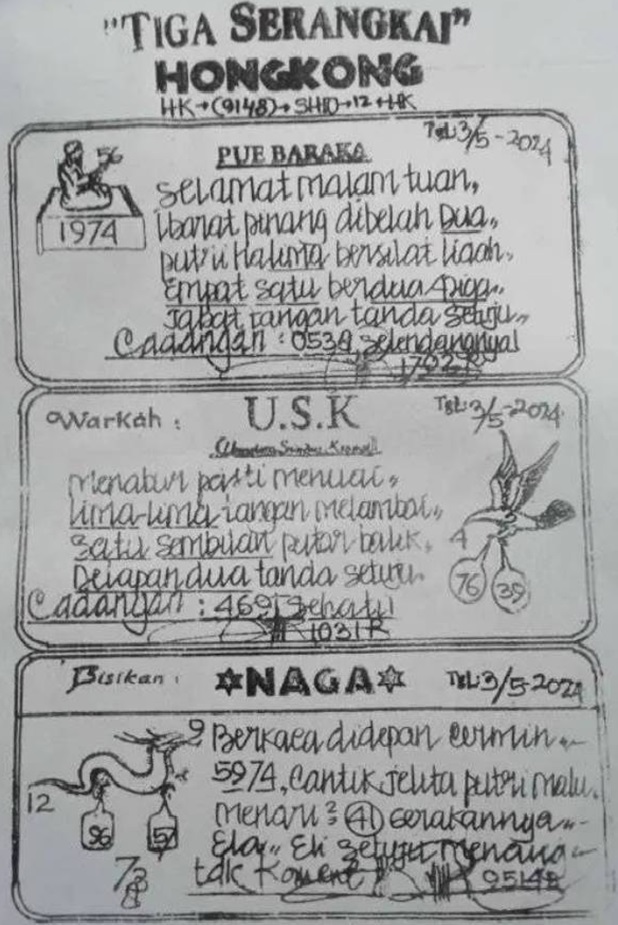 "TIGA SERANGKAI"
HONGKONG
HK→(9148)→SHIO→12+HK
Tgl:3/5-2024
56
1974
PUE BARAKA
Selamat malam tuan,,
ibarat pinang dibelah Dua,,
putri Halima bersilat lidah,,
Empat satu berdua tiga,,
Jabat tangan tanda setuju,,
Cadangan : 053 Selendangnya!
Warkah :
U.S.K
Tgl:3/5-2024
menabur pasti menuai,,
lima-lima tangan melambai,,
satu sembilan putar balik,,
Delapan dua tanda setuju.
4
76
39
Cadangan : 4691 Sehati!
1031R
Bisikan :
NAGA
Tgl:3/5-2024
9
12
96
57
Berkaca didepan cermin
5974, Cantik jelita putri malu.
menari² (41) gerakannya
Ela,, Eli setuju
tdk Koment
9514R